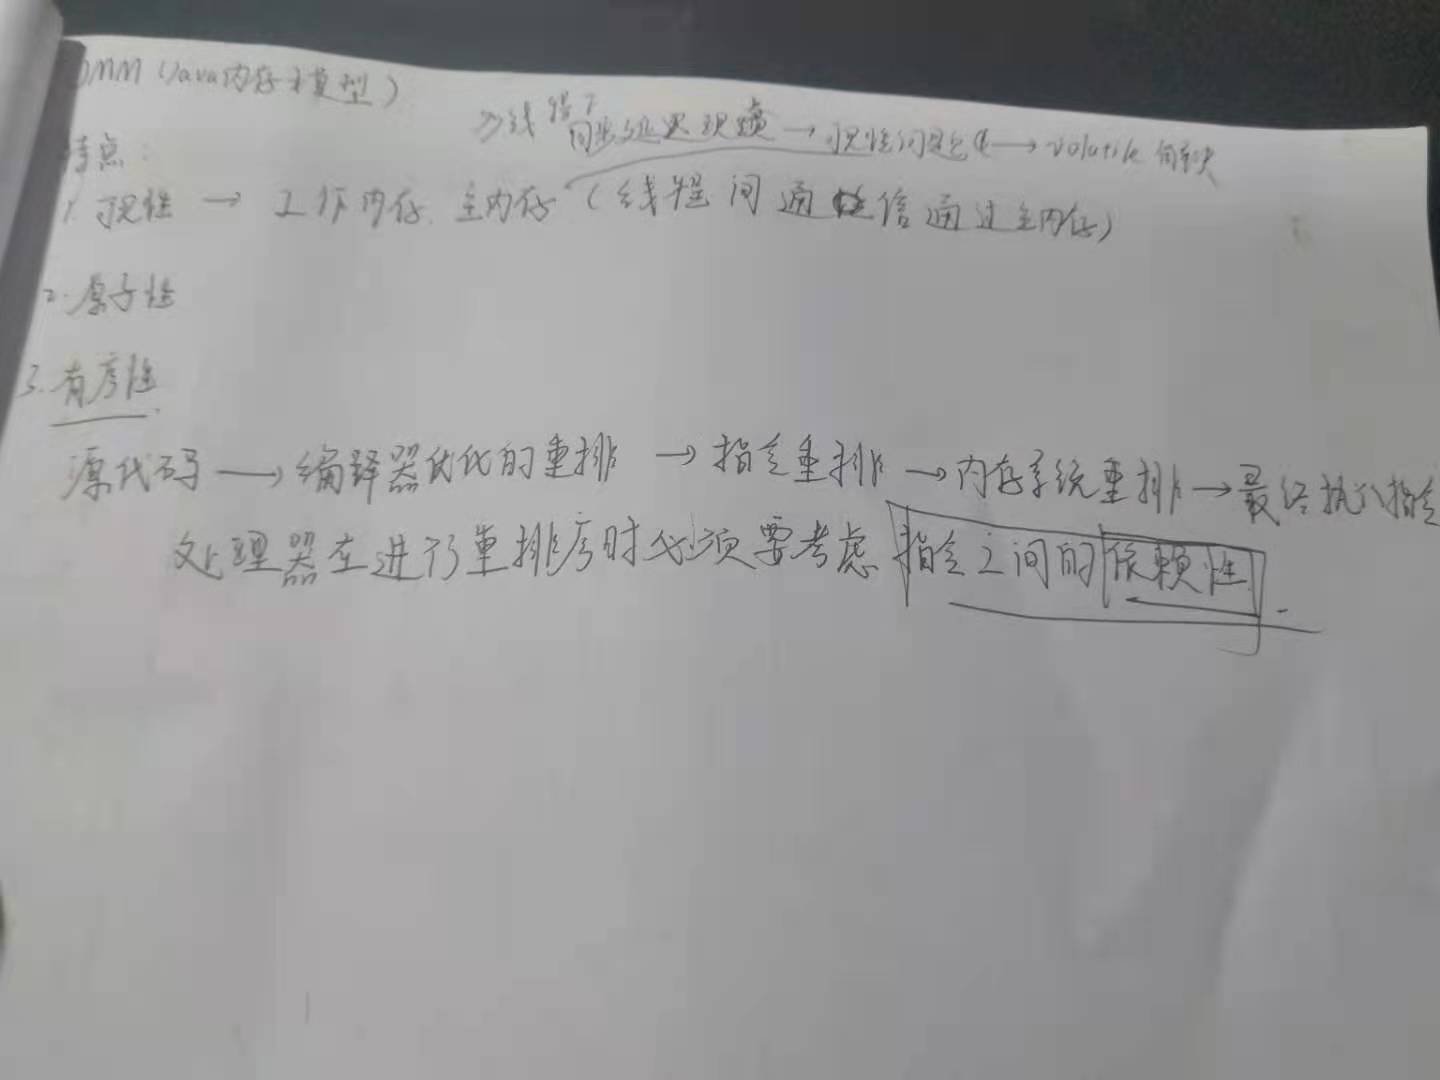 JMM(Java内存模型)
多线程下
同步延迟现象→可见性问题→volatile 解决
特点:
1.可见性→工作内存.主内存(线程间通信通过主内存)
2.原子性
3.有序性
源代码→编译器优化的重排→指令重排→内存系统重排→最终执行指令
处理器在进行重排序时必须要考虑指令之间的依赖性.